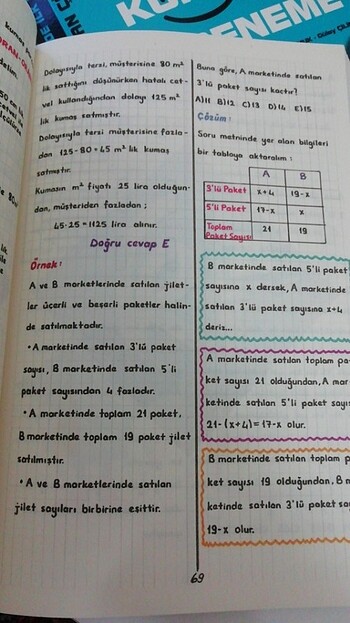 DENEME
Dolayısıyla terzi, müşterisine 80 m²
lik sattığını düşünürken hatalı cet-
vel kullandığından dolayı 125 m²
lik kumaş satmıştır.
Dolayısıyla terzi müşterisine fazla-
dan 125-80=45 m² lik kumaş
satmıştır.
Kumaşın m² fiyatı 25 lira olduğun-
dan, müşteriden fazladan;
45·25=1125 lira alınır.
Doğru cevap E
Örnek:
A ve B marketlerinde satılan jilet-
ler üçerli ve beşerli paketler halin-
de satılmaktadır.
• A marketinde satılan 3'lü paket
sayısı, B marketinde satılan 5'li
paket sayısından 4 fazladır.
• A marketinde toplam 21 paket,
B marketinde toplam 19 paket jilet
satılmıştır.
• A ve B marketlerinde satılan
jilet sayıları birbirine eşittir.
Buna göre, A marketinde satılan
3'lü paket sayısı kaçtır?
A)11 B)12 C)13 D)14 E)15
Çözüm:
Soru metninde yer alan bilgileri
bir tabloya aktaralım:
A B
3'lü Paket x+4 19-x
5'li Paket 17-x x
Toplam Paket Sayısı 21 19
B marketinde satılan 5'li paket
sayısına x dersek, A marketinde
satılan 3'lü paket sayısına x+4
deriz...
A marketinde satılan toplam pa-
ket sayısı 21 olduğundan, A mar
ketinde satılan 5'li paket sayıs
21-(x+4)=17-x olur.
B marketinde satılan toplam p
ket sayısı 19 olduğundan, B m
ketinde satılan 3'lü paket sa
19-x olur.
69